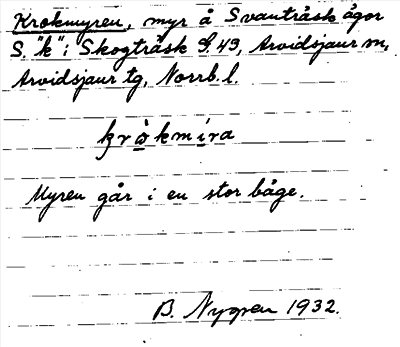 Krokmyren, myr å Svanträsks ägor
S. "k"; Skogträsk S. 43, Arvidsjaur sn,
Arvidsjaur tg, Norrb. l.
krò̱kmi̱ra
Myren går i en stor båge.
B. Nygren 1932.